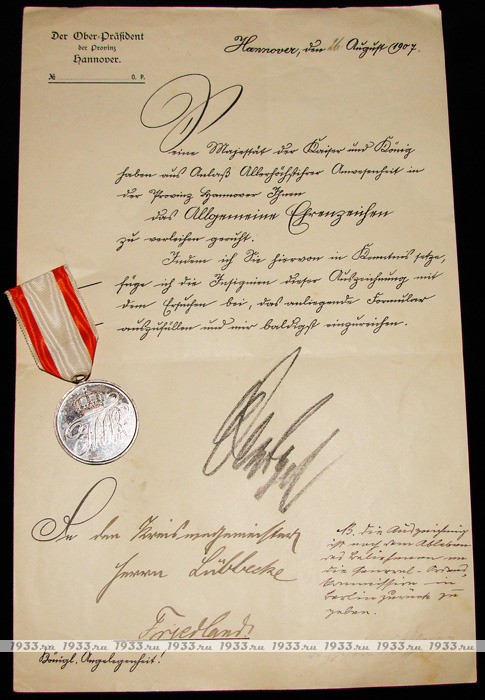 Der Ober-Präsident
der Provinz
Hannover.
№ O. P.
Hannover, den 26 August 1907.
Seine Majestät der Kaiser und König
haben aus Anlaß Allerhöchstihrer Anwesenheit in
der Provinz Hannover Ihnen
das Allgemeine Ehrenzeichen
zu verleihen geruht.
Indem ich Sie hiervon in Kenntnis setze,
füge ich die Insignien dieser Auszeichnung mit
dem Ersuchen bei, das anliegende Formular
auszufüllen und mir baldigst einzureichen.
An den Kreiswegemeister
Herrn Lübbecke
Friedland
Königl. Angelegenheit!
N. die Auszeichnung
ist nach dem Ableben
des Beliehenen an
die General-Ordens
Kommission in
Berlin zurück zu
geben.
1933.ru 1933.ru 1933.ru 1933.ru 1933.ru 1933.ru 1933.ru